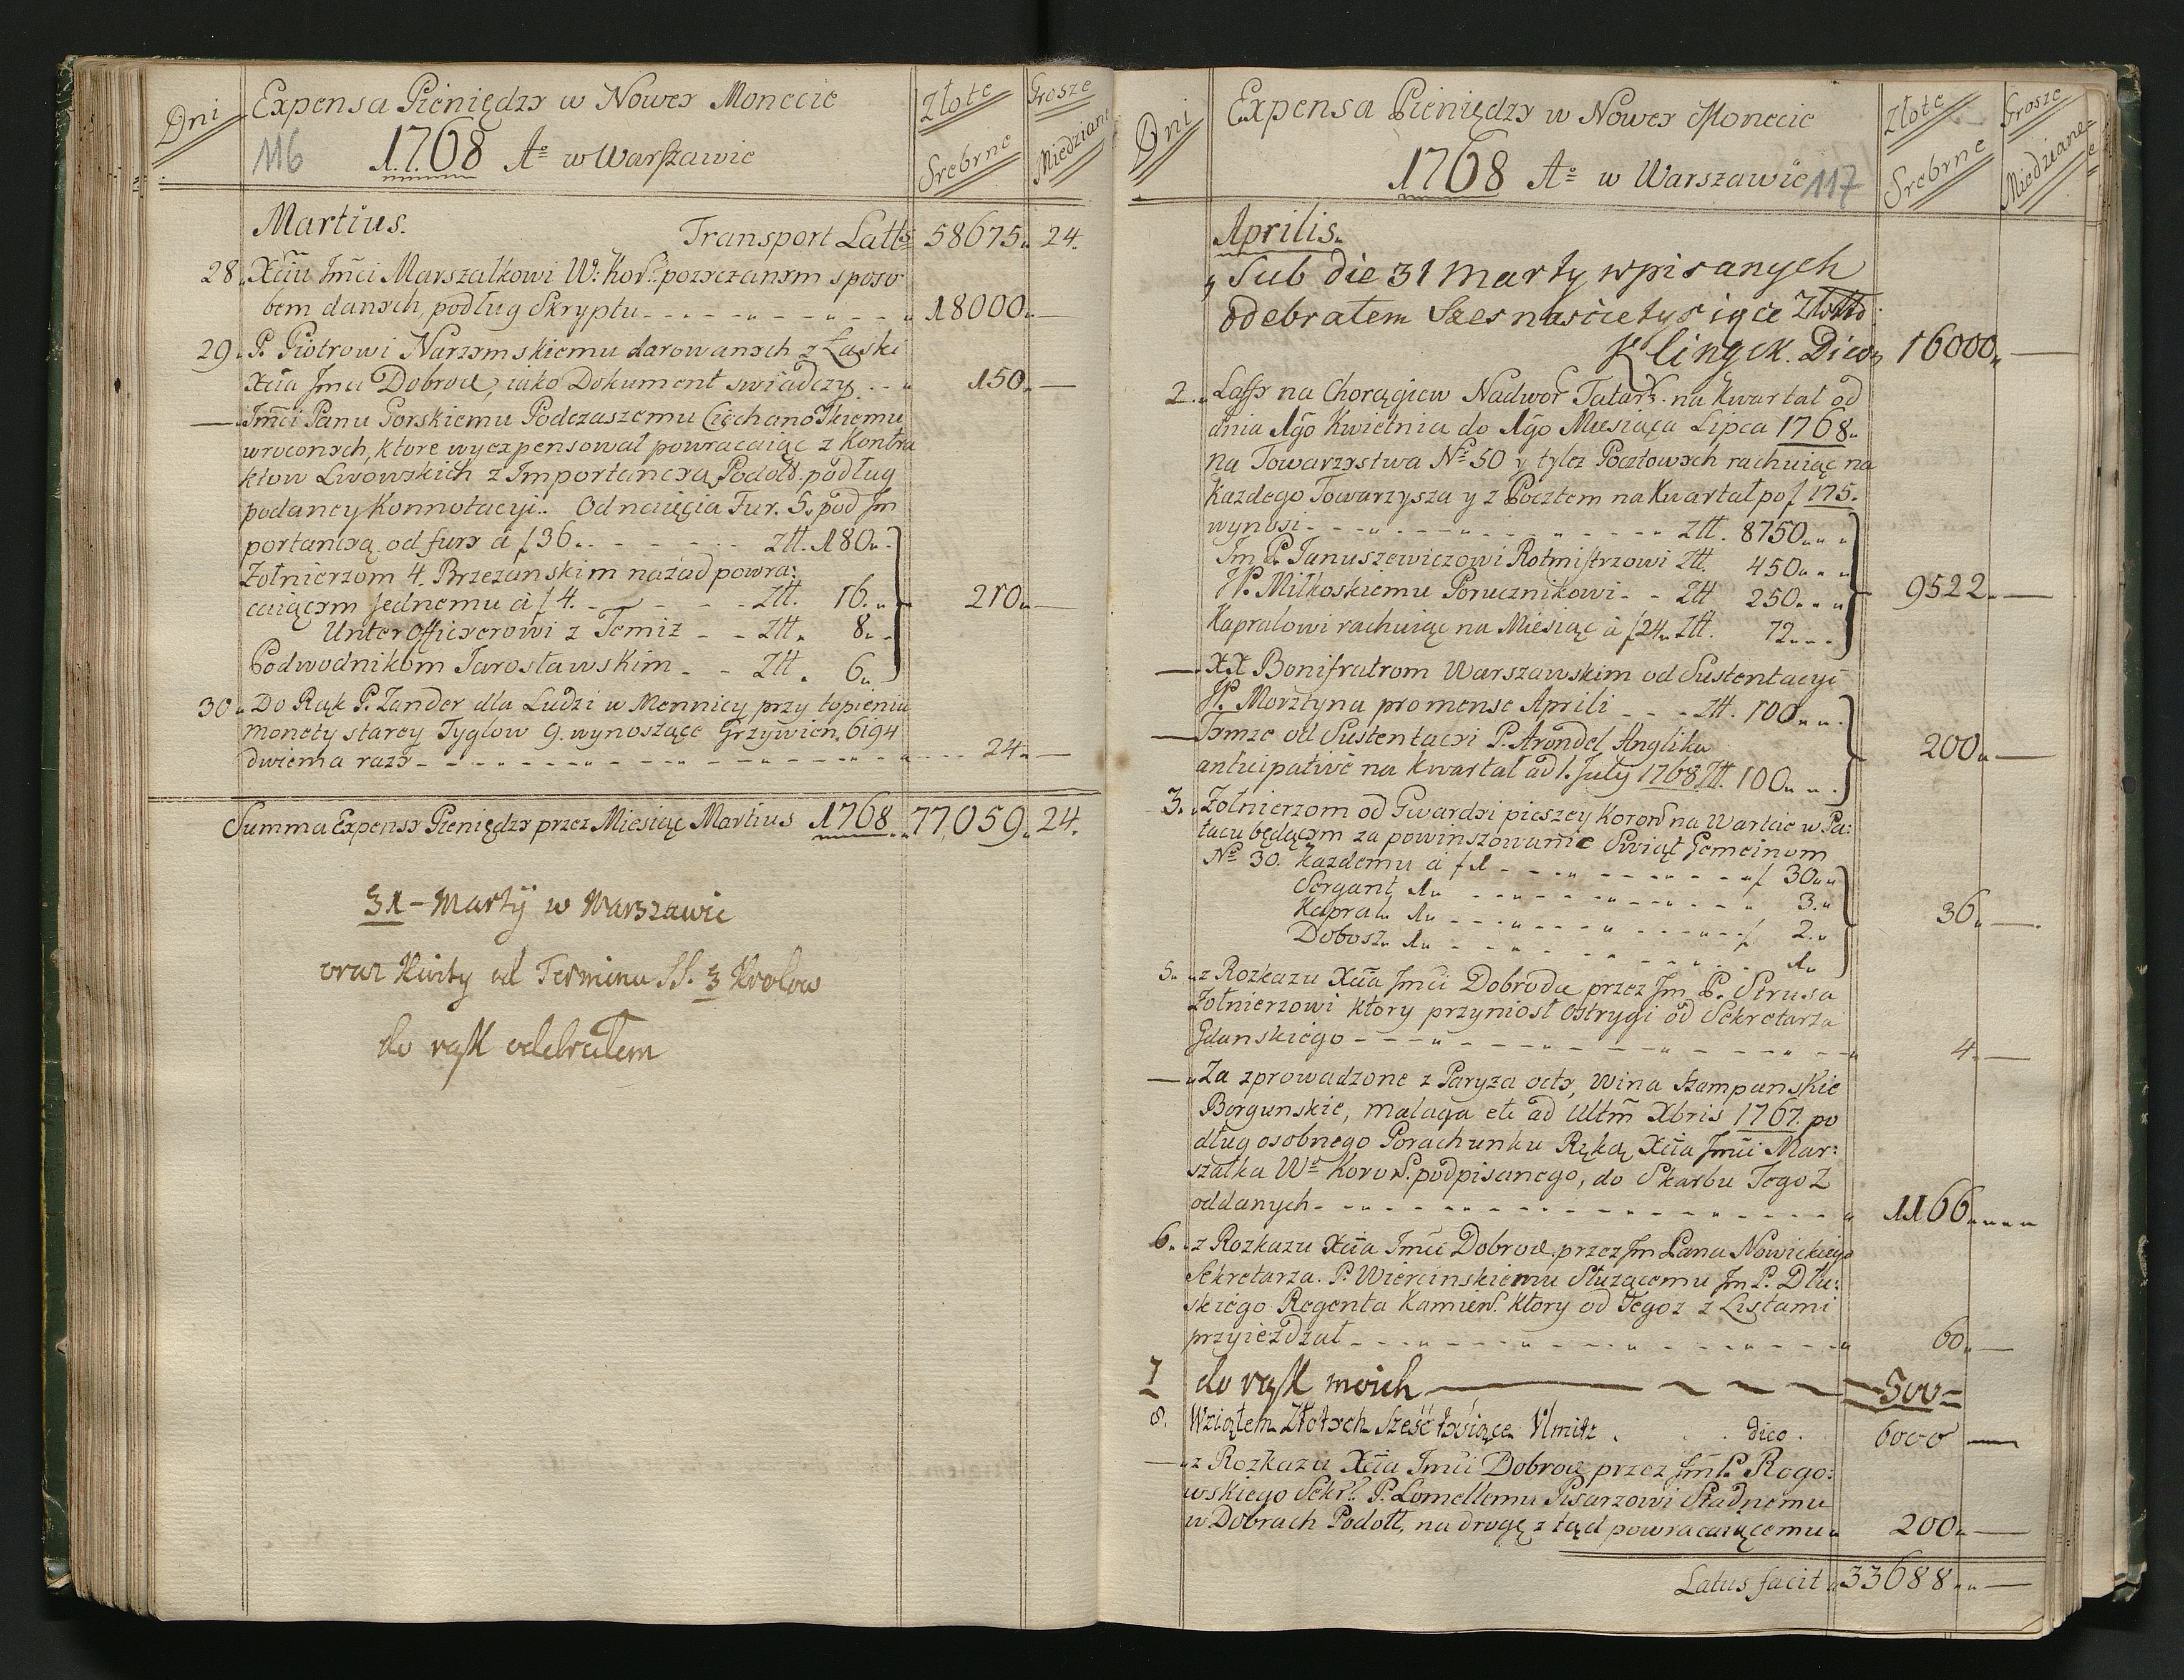 Dni
Expensa Pieniędzy w Nowey Monecie
116 1768 Ao w Warszawie
Złote Srebrne
Grosze Miedziane
Martius. Transport Latts 58675. 24.
28. Xciu Jmci Marszałkowi W: Kor. pozyczanym sposo
bem danych, podług Skryptu 18000. —
29. P. Piotrowi Narzymskiemu darowanych z Łaski
Xcia Jmci Dobrod, iako Dokument swiadczy 150. —
— Jmci Panu Gorskiemu Podczaszemu Ciechanoskiemu
wroconych, ktore wyexpensował powracaiąc z Kontra
ktow Lwowskich z Importancyą Podols. podług
podaney Konnotacyi. Od naięcia Fur. 5. pod Jm
portancyą od fury a f 36. Ztt. 180.
Zołnierzom 4. Brzezanskim nazad powra:
caiącym jednemu a f 4. Ztt. 16. 210. —
Unterofficyerowi z Temiz Ztt. 8.
Podwodnikom Jarosławskim Ztt. 6.
30. Do Rąk P. Zander dla Ludzi w Mennicy przy topieniu
monety starey Tyglow 9. wynoszące Grzywien. 6194
dwiema razy 24. —
Summa Expensy Pieniędzy przez Miesiąc Martius 1768. 77,059. 24.
31 – Marty w Warszawie
oraz Kwity od Terminu SS. 3 Krolow
do rąk odebrałem
Dni
Expensa Pieniędzy w Nowey Monecie
1768 Ao w Warszawie 117
Złote Srebrne
Grosze Miedziane
Aprilis.
Sub die 31 Marty wpisanych
odebrałem Szesnascie tysięce Złott
Klingek. Dico 16000. —
2. Laffy na Chorągiew Nadwor Tatars. na Kwartał od
dnia 1go Kwietnia do 1go Miesiąca Lipca 1768.
na Towarzystwa No 50 y tylez Pocztowych rachuiąc na
Kazdego Towarzysza y z Pocztem na Kwartał po f 175.
wynosi Ztt. 8750.
Jm P. Januszewiczowi Rotmistrzowi Ztt. 450.
JP. Miłkoskiemu Porucznikowi Ztt 250. 9522. —
Kapralowi rachuiąc na Miesiąc a f 24. Ztt. 72.
— XX Bonifratrom Warszawskim od Sustentacyi
JP. Morsztyna pro mense Aprili Ztt. 100.
— Tymze od Sustentacyi P. Arondel Anglika 200. —
anticipative na Kwartał ad 1. July 1768 Ztt. 100.
3. Zołnierzom od Gwardyi pieszey Koron na Warcie w Pa:
łacu będącym za powinszowanie Swiąt Gemeinom
No 30. kazdemu a f 1 f 30.
Sergant 1. 3.
Kapral. 1. f 2. 36. —
Dobosz. 1. 1.
5. z Rozkazu Xcia Jmci Dobrodu przez Jm P. Strusa
Zołnierzowi ktory przyniosł Ostrygi od Sekretarza
Gdanskiego 4. —
— Za zprowadzone z Paryza octy, Wina Szampanskie
Borgunskie, malaga etc ad Ultm Xbris 1767. po
dług osobnego Porachunku Ręką Xcia Jmci Mar:
szałka Wo Koron. podpisanego, do Skarbu Tegoz
oddanych 1166.
6. z Rozkazu Xcia Jmci Dobrod. przez Jm Pana Nowickiego
Sekretarza. P. Wiercinskiemu Słuzącemu Jm P. Dłu:
skiego Regenta Kamien. ktory od Tegoz z Listami
przyiezdzał 60. —
7 do rąk moich 500 –
8. Wziąłem Złotych Sześć tysiące dico. 6000 —
— z Rozkazu Xcia Jmci Dobrod przez Jm P. Rogo:
wskiego Sekr. P. Lomellemu Pisarzowi Stadnemu
w Dobrach Podoll, na drogę z tąd powracaiącemu 200. —
Latus facit 33688. —